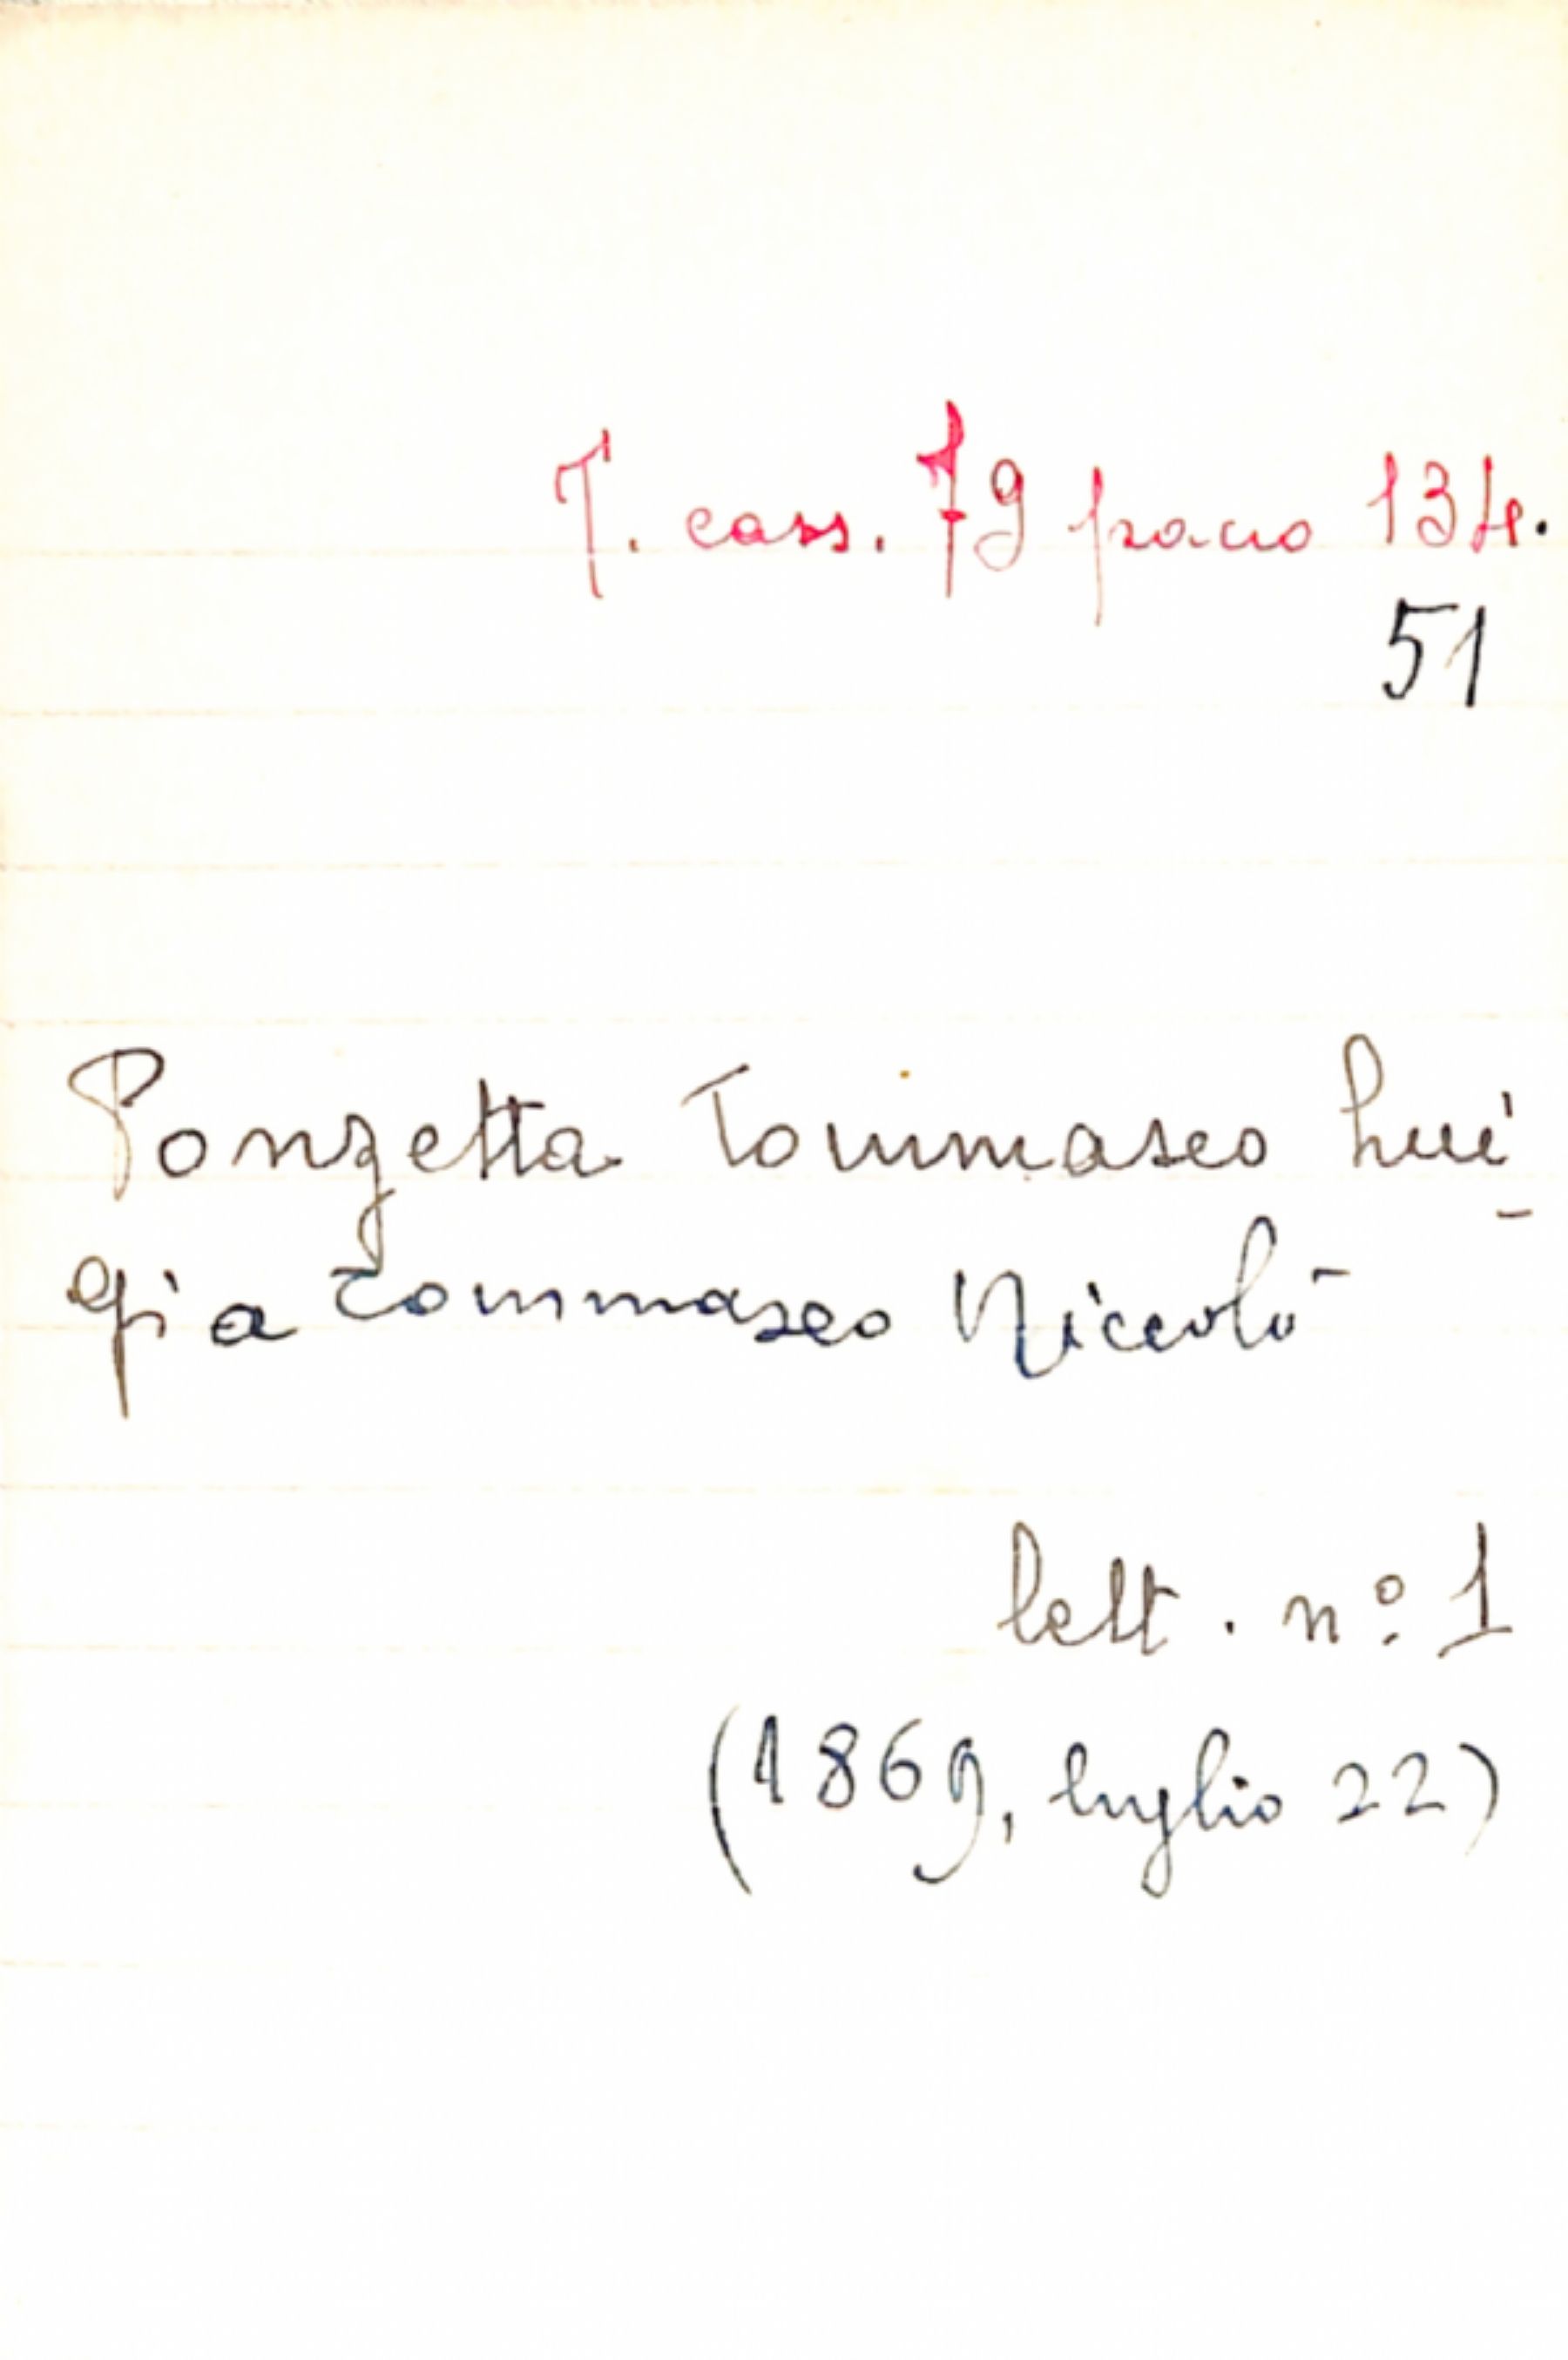 T. cass. 79 pacco 134.
51
Ponzetta Tommaseo Lui-
gi a Tommaseo Niccolò
lett. nº 1
(1869, luglio 22)